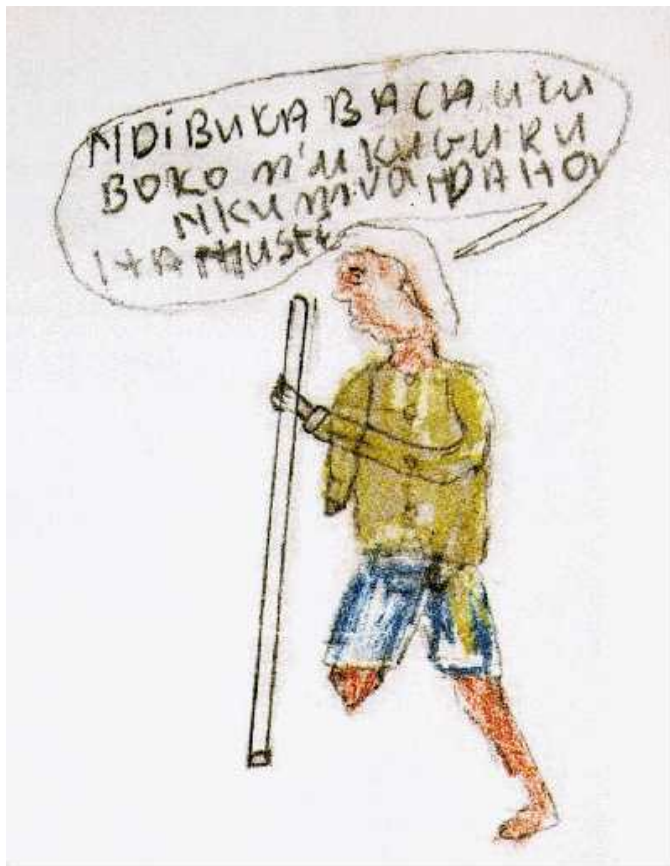 NDIBUKA BACA UKU
BOKO N'UKUGURU
NKUMVA NDAHO